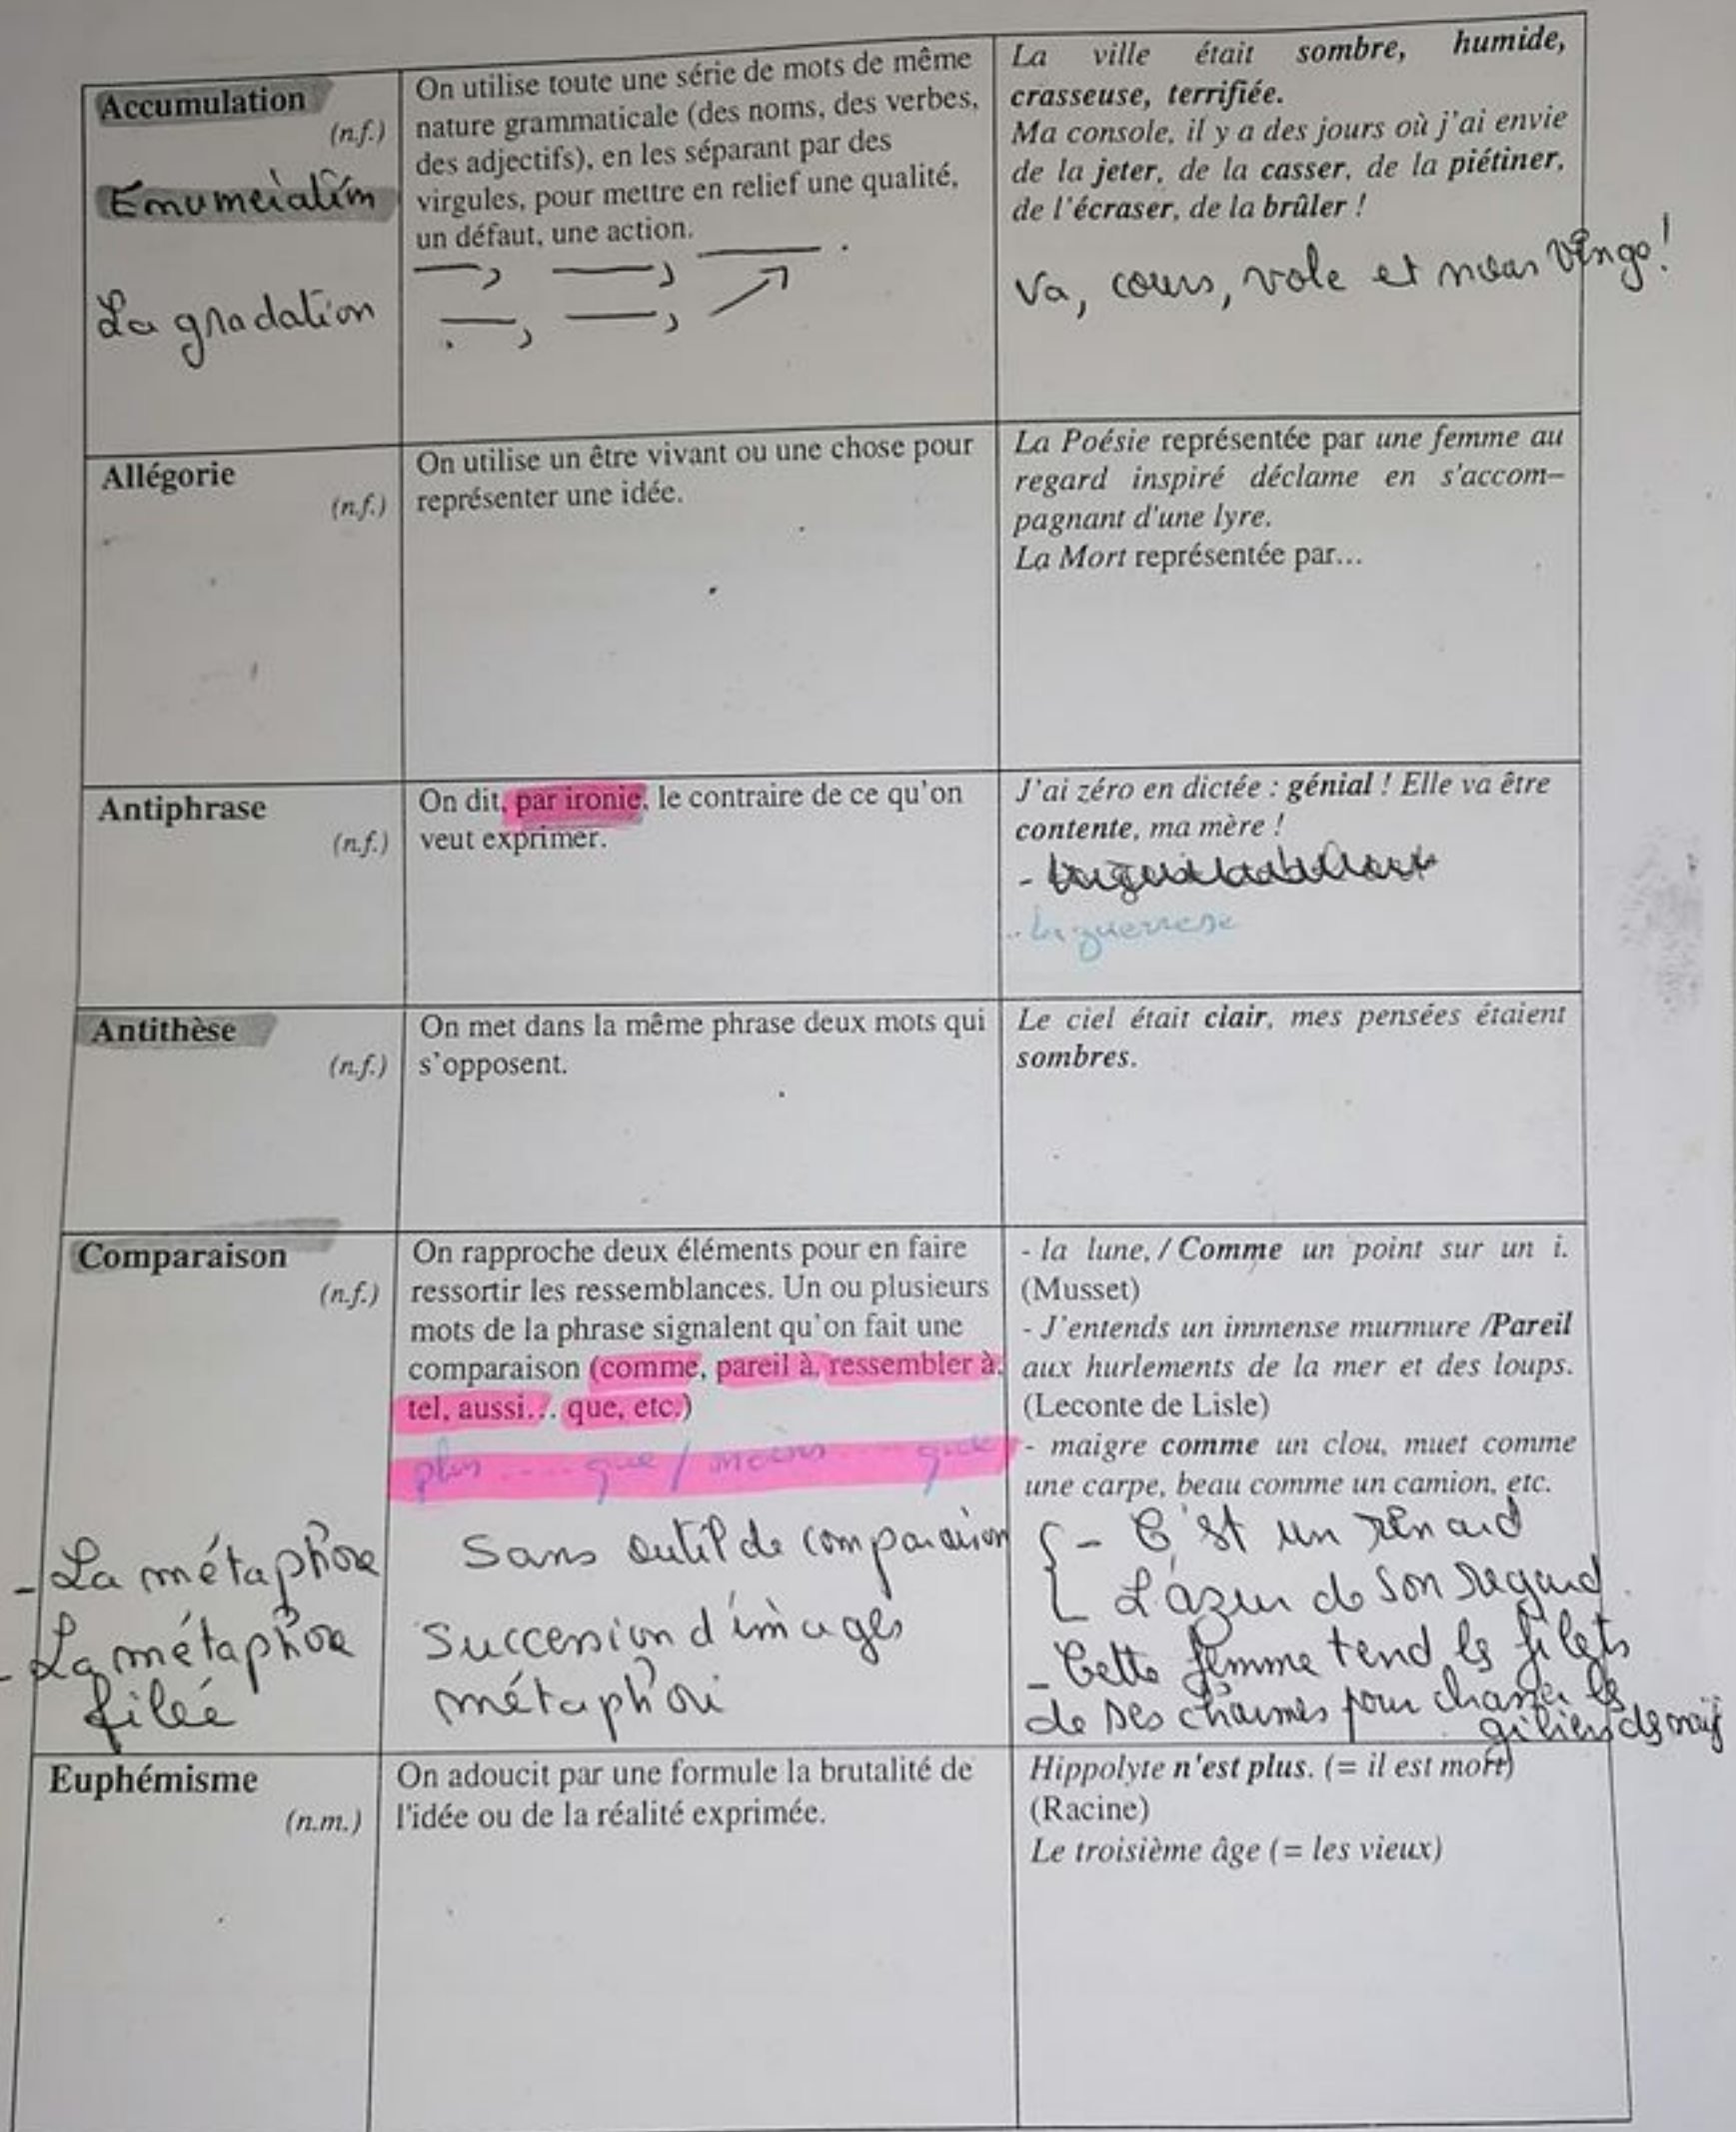 Accumulation
(n.f.)
Enumération
La gradation
On utilise toute une série de mots de même
nature grammaticale (des noms, des verbes,
des adjectifs), en les séparant par des
virgules, pour mettre en relief une qualité,
un défaut, une action.
La ville était sombre, humide,
crasseuse, terrifiée.
Ma console, il y a des jours où j'ai envie
de la jeter, de la casser, de la piétiner,
de l'écraser, de la brûler !
Va, cours, vole et nous venge!
Allégorie
(n.f.)
On utilise un être vivant ou une chose pour
représenter une idée.
La Poésie représentée par une femme au
regard inspiré déclame en s'accom–
pagnant d'une lyre.
La Mort représentée par...
Antiphrase
(n.f.)
On dit, par ironie, le contraire de ce qu'on
veut exprimer.
J'ai zéro en dictée : génial ! Elle va être
contente, ma mère !
Antithèse
(n.f.)
On met dans la même phrase deux mots qui
s'opposent.
Le ciel était clair, mes pensées étaient
sombres.
Comparaison
(n.f.)
On rapproche deux éléments pour en faire
ressortir les ressemblances. Un ou plusieurs
mots de la phrase signalent qu'on fait une
comparaison (comme, pareil à, ressembler à,
tel, aussi... que, etc.)
plus .... que / moins .... que
- la lune, / Comme un point sur un i.
(Musset)
- J'entends un immense murmure /Pareil
aux hurlements de la mer et des loups.
(Leconte de Lisle)
- maigre comme un clou, muet comme
une carpe, beau comme un camion, etc.
- La métaphore
Sans outil de comparaison
- C'est un renard
L'azur de son regard
- La métaphore
filée
Succession d'images
métaphori
- Cette femme tend les filets
de ses charmes pour chasser les
gibiers de naïf
Euphémisme
(n.m.)
On adoucit par une formule la brutalité de
l'idée ou de la réalité exprimée.
Hippolyte n'est plus. (= il est mort)
(Racine)
Le troisième âge (= les vieux)